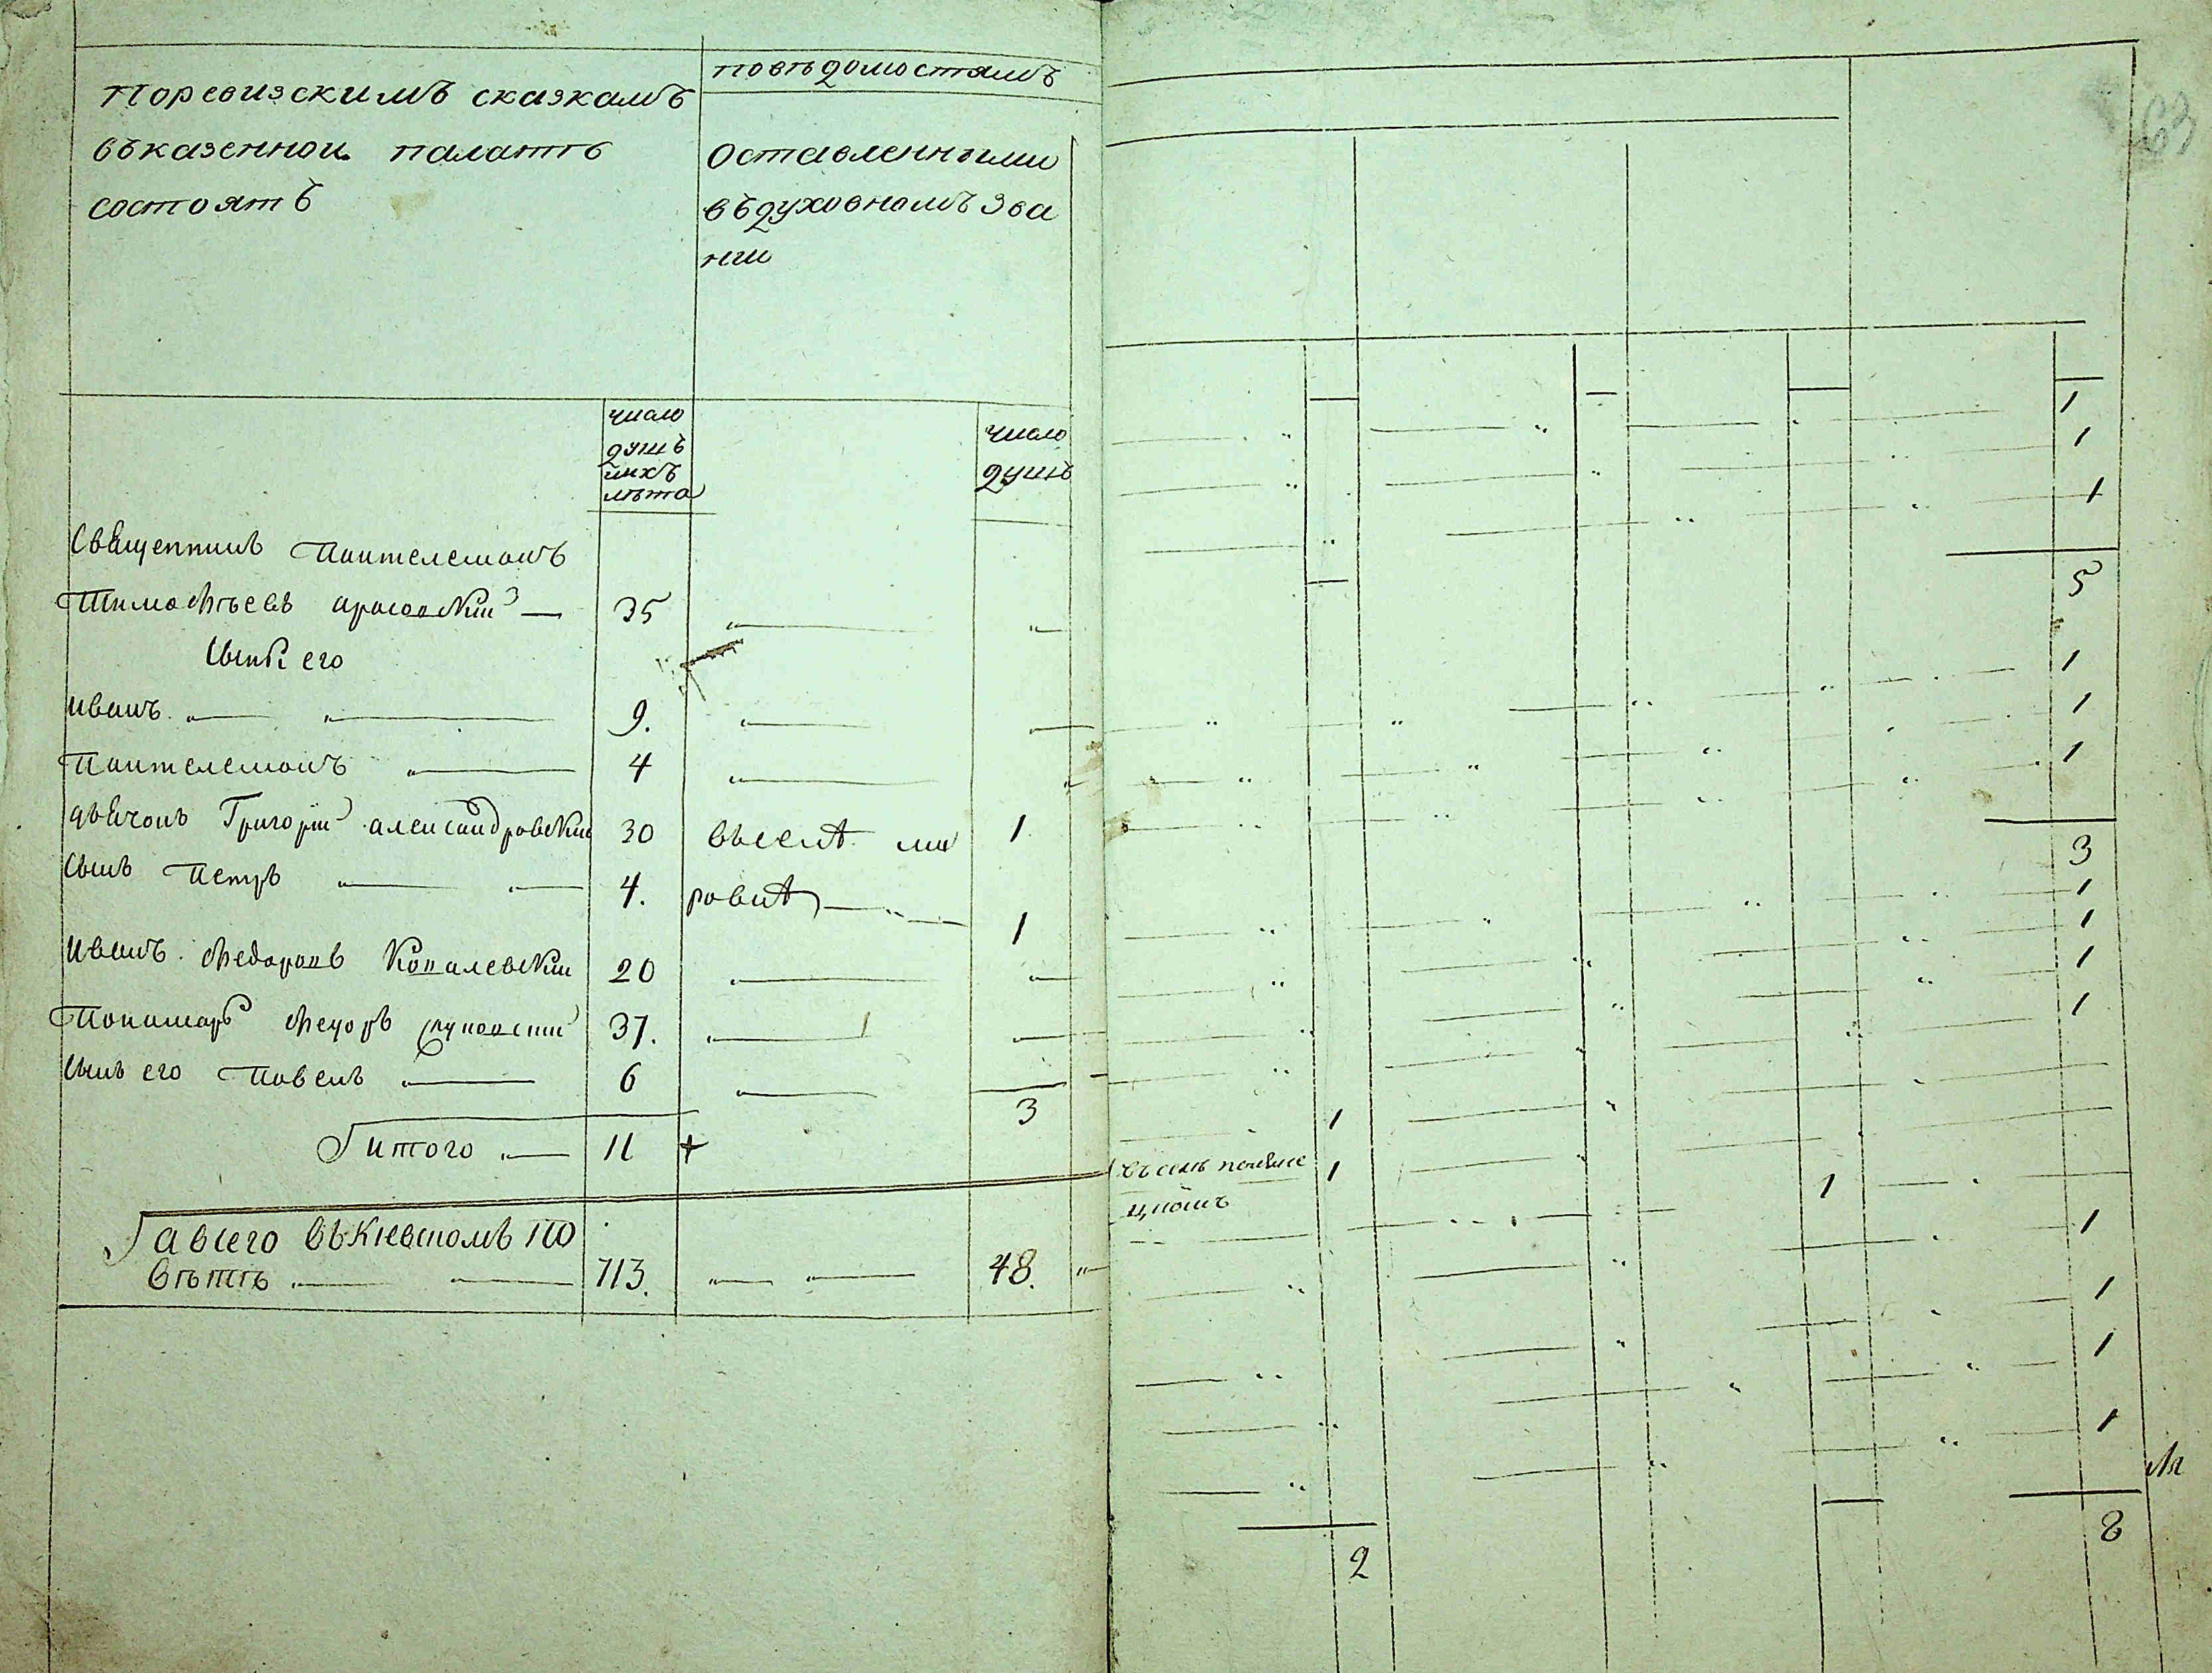 63
Поревизскимъ сказкамъ
въказенной палатѣ
состоятъ
повѣдомостямъ
Оставленными
въдуховномъ Зва
нии
число
душъ
ихъ
лѣта
число
душъ
Священникъ Пантелемонъ
Тимофѣевъ — 35
Сынъ его
Иванъ 9.
Пантелемонъ 4
дьячокъ Григорій александровскій 30 въселѣ ми 1
Сынъ Петръ 4. ровкѣ 1
Иванъ Федоровъ Ковалевскій 20
Пономарь Федоръ 37.
Сынъ его Павелъ 6
3
Итого 11 +
Авсего въКіевскомъ по
вѣтѣ 713. 48.
1
1
1
5
1
1
1
3
1
1
1
1
1
въселѣ 1 1
1
1
1
1
2 8